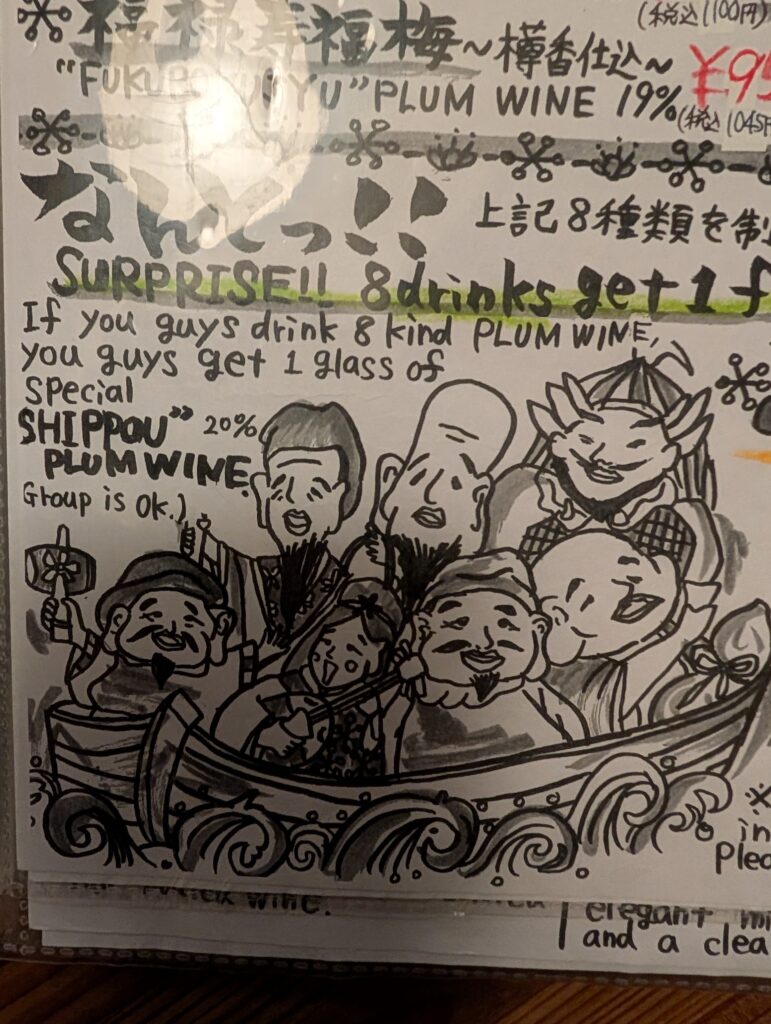 (税込1100円)
福禄寿福梅～樽香仕込～
"FUKUROKUJYU" PLUM WINE 19%
¥95
(税込1045円
なんとっ!!
上記8種類を制
SURPRISE!! 8drinks get 1 f
If you guys drink 8 kind PLUM WINE,
you guys get 1 glass of
special
SHIPPOU" 20%
PLUM WINE.
Group is ok.)
※
in
Plea
wine.
elegant mi
and a clea